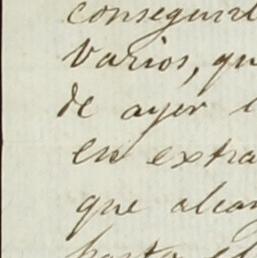 conseguirl
varios, qu
de ayer
en extra
que alcan
hasta el